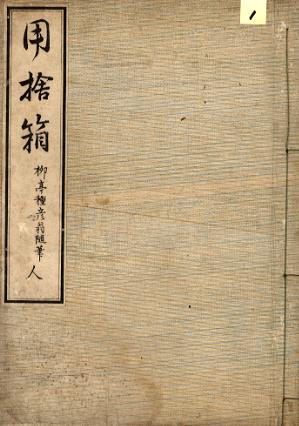 用捨箱
柳亭種彦翁随筆 人
1